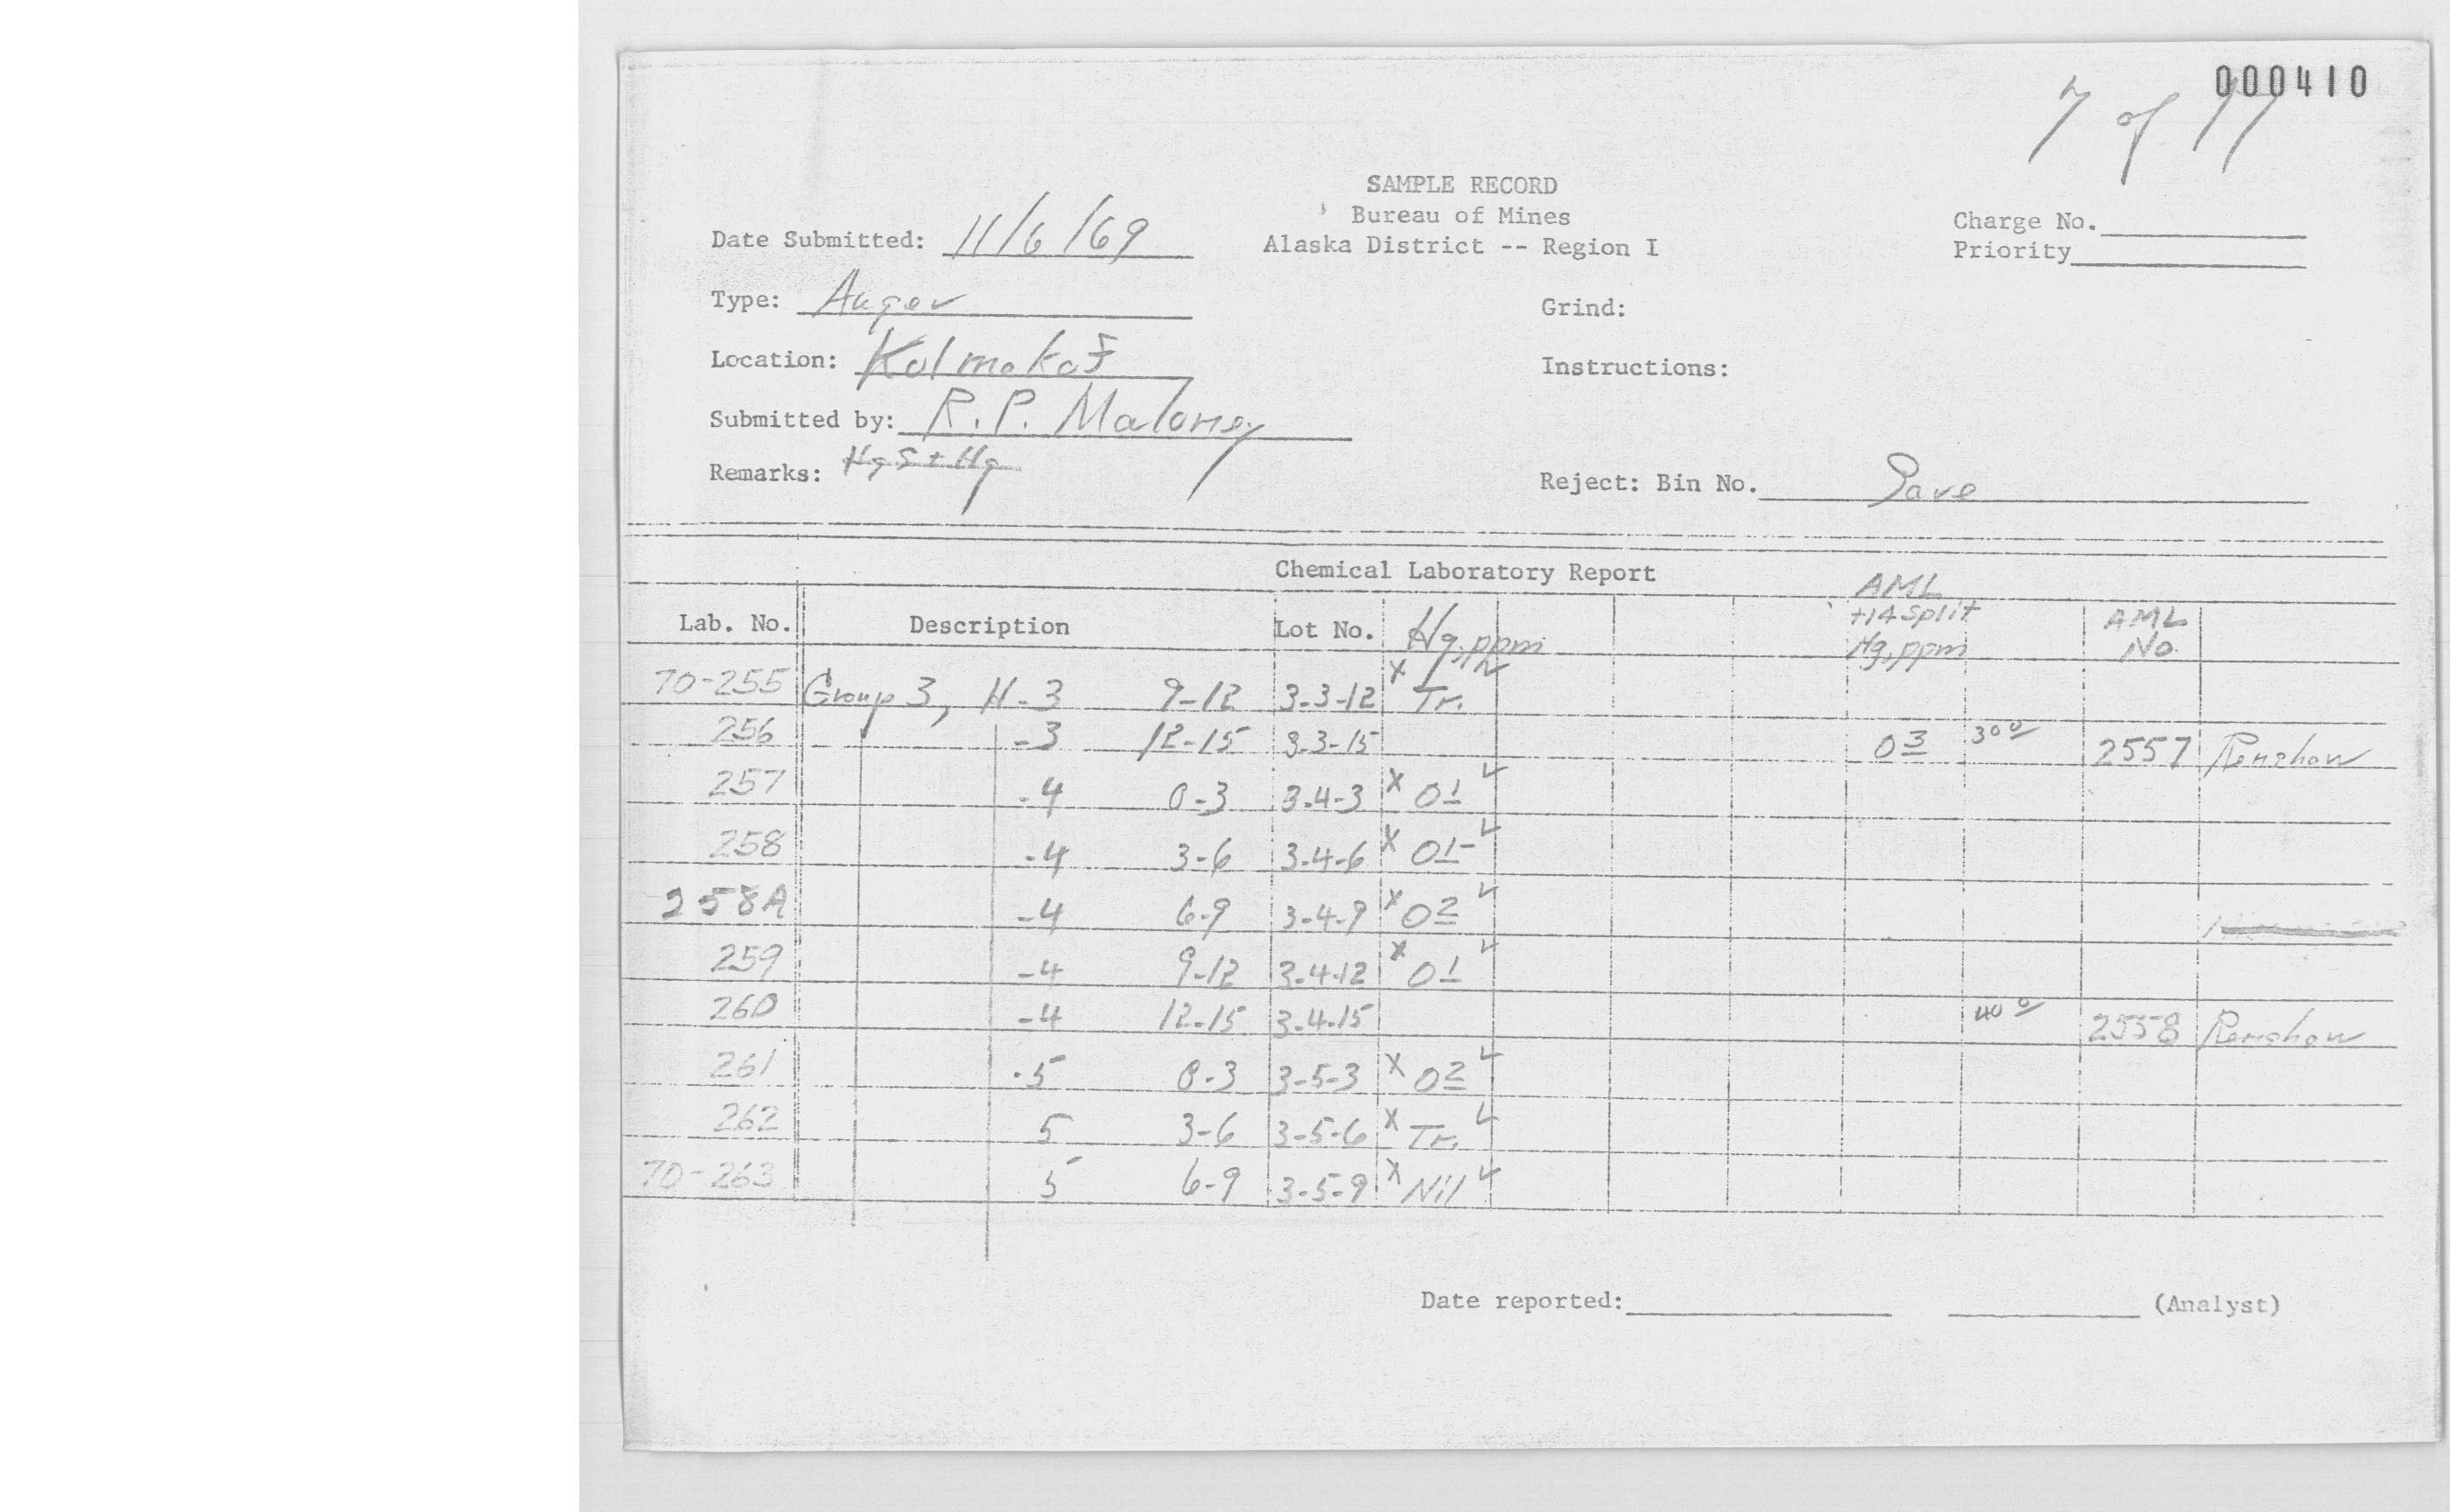 000410
7 of 17
SAMPLE RECORD
Bureau of Mines
Alaska District -- Region I
Date Submitted: 11/6/69
Charge No.
Priority
Type: Auger
Grind:
Location: Kolmakof
Instructions:
Submitted by: R.P. Maloney
Remarks: HgS + Hg
Reject: Bin No. Save
Chemical Laboratory Report
Lab. No. Description Lot No. Hg, ppm AML +14 split Hg, ppm AML No.
70-255 Group 3, H-3 9-12 3-3-12 x Tr. ✓
256 -3 12-15 3-3-15 03 300 2557 Renshaw
257 -4 0-3 3-4-3 x 01 ✓
258 -4 3-6 3-4-6 x 01- ✓
258A -4 6-9 3-4-9 x 02 ✓
259 -4 9-12 3-4-12 x 01 ✓
260 -4 12-15 3-4-15 400 2558 Renshaw
261 -5 0-3 3-5-3 x 02 ✓
262 5 3-6 3-5-6 x Tr. ✓
70-263 5 6-9 3-5-9 x Nil ✓
Date reported: (Analyst)